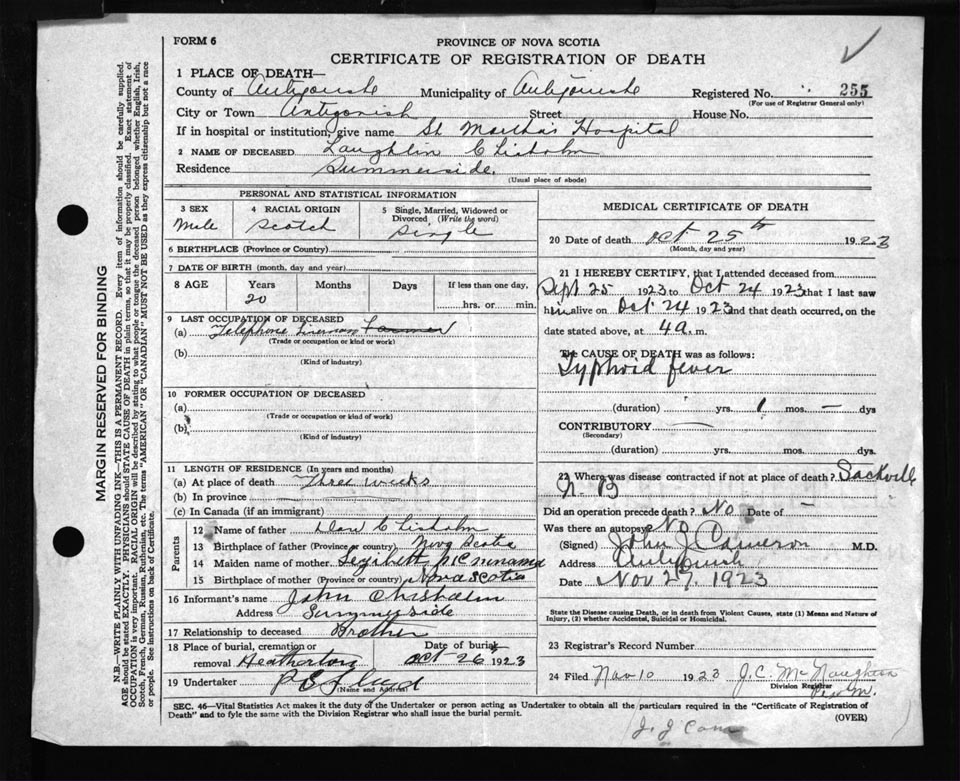 FORM 6
PROVINCE OF NOVA SCOTIA
CERTIFICATE OF REGISTRATION OF DEATH
1 PLACE OF DEATH—
County of Antigonish Municipality of Antigonish Registered No. 255
(For use of Registrar General only)
City or Town Antigonish Street House No.
If in hospital or institution, give name St Martha's Hospital
2 NAME OF DECEASED Laughlin Chisholm
Residence Summerside.
(Usual place of abode)
PERSONAL AND STATISTICAL INFORMATION
3 SEX 4 RACIAL ORIGIN 5 Single, Married, Widowed or
Divorced (Write the word)
Male Scotch Single
6 BIRTHPLACE (Province or Country)
7 DATE OF BIRTH (month, day and year)
8 AGE Years Months Days If less than one day,
20 hrs. or min.
9 LAST OCCUPATION OF DECEASED
(a) Telephone Lineman Farmer
(Trade or occupation or kind or work)
(b)
(Kind of industry)
10 FORMER OCCUPATION OF DECEASED
(a)
(Trade or occupation or kind of work)
(b)
(Kind of industry)
11 LENGTH OF RESIDENCE (In years and months)
(a) At place of death Three weeks
(b) In province
(c) In Canada (if an immigrant)
Parents
12 Name of father Dan Chisholm
13 Birthplace of father (Province or country) Nova Scotia
14 Maiden name of mother
15 Birthplace of mother (Province or country) Nova Scotia
16 Informant's name John Chisholm
Address Summerside
17 Relationship to deceased Brother
18 Place of burial, cremation or Date of burial
removal Heatherton Oct 26 1923
19 Undertaker
(Name and Address)
MEDICAL CERTIFICATE OF DEATH
20 Date of death Oct 25th 1923
(Month, day and year)
21 I HEREBY CERTIFY, that I attended deceased from
Sept 25 1923 to Oct 24 1923 that I last saw
him alive on Oct 24 1923 and that death occurred, on the
date stated above, at 4 a. m.
The CAUSE OF DEATH was as follows:
Typhoid fever
(duration) yrs. 1 mos. — dys
CONTRIBUTORY
(Secondary)
(duration) yrs. mos. dys.
22 Where was disease contracted if not at place of death? Sackville
N. B
Did an operation precede death? No Date of —
Was there an autopsy No
(Signed) John J Cameron M.D.
Address Antigonish
Date Nov 27, 1923
State the Disease Causing Death, or in death from Violent Causes, state (1) Means and Nature of
Injury, (2) whether Accidental, Suicidal or Homicidal.
23 Registrar's Record Number
24 Filed Nov 10 1923 J. C. McNaughton
Division Registrar
SEC. 46—Vital Statistics Act makes it the duty of the Undertaker or person acting as Undertaker to obtain all the particulars required in the "Certificate of Registration of
Death" and to fyle the same with the Division Registrar who shall issue the burial permit.
(OVER)
J. J Cam
MARGIN RESERVED FOR BINDING
N.B.—WRITE PLAINLY WITH UNFADING INK—THIS IS A PERMANENT RECORD. Every item of information should be carefully supplied.
AGE should be stated EXACTLY. PHYSICIANS should STATE CAUSE OF DEATH in plain terms, so that it may be properly classified. Exact statement of
OCCUPATION is very important. RACIAL ORIGIN will be described by stating to what people or tongue the deceased person belonged whether English, Irish,
Scotch, French, German, Russian, Ruthenian, etc. The terms "AMERICAN" OR "CANADIAN" MUST NOT BE USED as they express citizenship but not a race
or people. See instructions on back of Certificate.